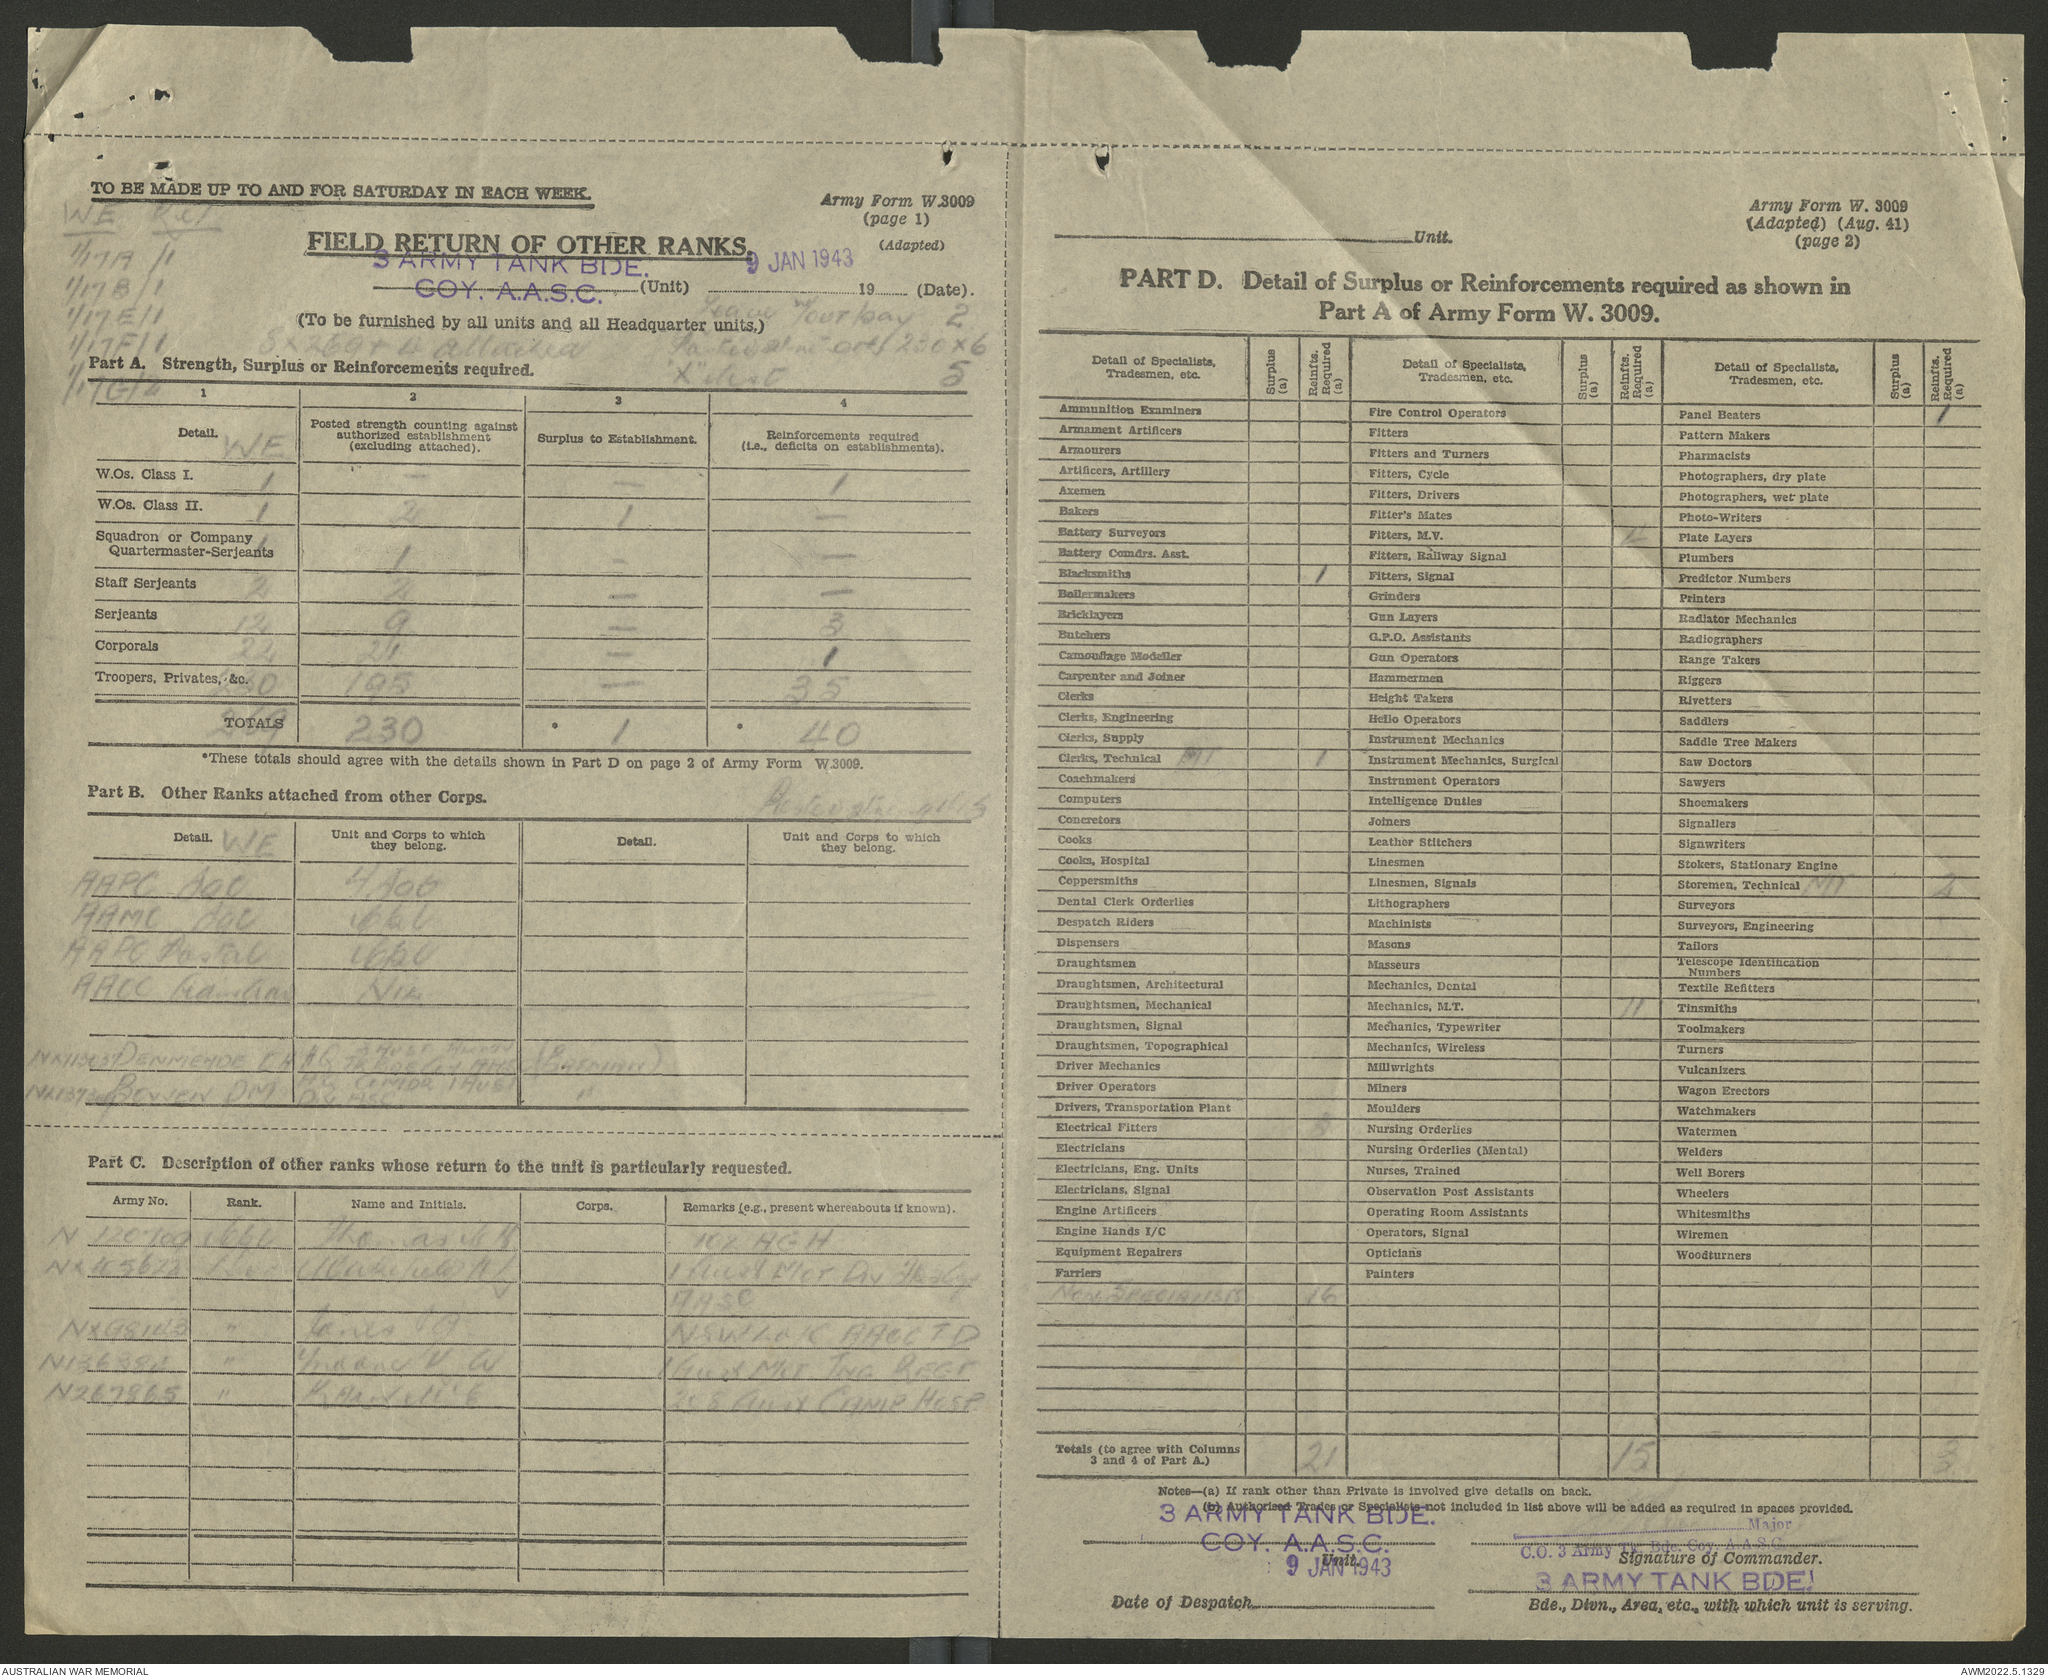 TO BE MADE UP TO AND FOR SATURDAY IN EACH WEEK.
Army Form W.3009
(page 1)
(Adapted)
WE
1/17A /1
1/17B /1
1/17E /1
1/17F /1
1/17G /
FIELD RETURN OF OTHER RANKS.
3 ARMY TANK BDE.
COY. A.A.S.C. (Unit)
9 JAN 1943
19 (Date).
(To be furnished by all units and all Headquarter units.)
Leave w/out pay 2
230 x 6
"X" list 5
Part A. Strength, Surplus or Reinforcements required.
1 2 3 4
Detail. WE
Posted strength counting against authorized establishment (excluding attached).
Surplus to Establishment.
Reinforcements required (i.e., deficits on establishments).
W.Os. Class I. 1 — — 1
W.Os. Class II. 1 2 1 —
Squadron or Company
Quartermaster-Serjeants 1 1 — —
Staff Serjeants 2 2 — —
Serjeants 12 9 — 3
Corporals 22 21 — 1
Troopers, Privates, &c. 230 195 — 35
TOTALS 269 230 * 1 * 40
*These totals should agree with the details shown in Part D on page 2 of Army Form W.3009.
Part B. Other Ranks attached from other Corps.
Detail. WE
Unit and Corps to which they belong.
Detail.
Unit and Corps to which they belong.
AAPC
AAMC
AAPC Postal
AACC
DENMEADE (BATMAN)
BOWEN DM "
Part C. Description of other ranks whose return to the unit is particularly requested.
Army No. Rank. Name and Initials. Corps. Remarks (e.g., present whereabouts if known).
Thomas 102 AGH
1 Aust Mot Div
AASC
" Jones
" 1 Aust Mot Trg REGT
N267865 " Aust CAMP HOSP
Army Form W. 3009
(Adapted) (Aug. 41)
(page 2)
Unit.
PART D. Detail of Surplus or Reinforcements required as shown in
Part A of Army Form W. 3009.
Detail of Specialists, Tradesmen, etc.
Surplus (a)
Reinfts. Required (a)
Detail of Specialists, Tradesmen, etc.
Surplus (a)
Reinfts. Required (a)
Detail of Specialists, Tradesmen, etc.
Surplus (a)
Reinfts. Required (a)
Ammunition Examiners
Armament Artificers
Armourers
Artificers, Artillery
Axemen
Bakers
Battery Surveyors
Battery Comdrs. Asst.
Blacksmiths 1
Boilermakers
Bricklayers
Butchers
Camouflage Modeller
Carpenter and Joiner
Clerks
Clerks, Engineering
Clerks, Supply
Clerks, Technical MT 1
Coachmakers
Computers
Concretors
Cooks
Cooks, Hospital
Coppersmiths
Dental Clerk Orderlies
Despatch Riders
Dispensers
Draughtsmen
Draughtsmen, Architectural
Draughtsmen, Mechanical
Draughtsmen, Signal
Draughtsmen, Topographical
Driver Mechanics
Driver Operators
Drivers, Transportation Plant
Electrical Fitters 3
Electricians
Electricians, Eng. Units
Electricians, Signal
Engine Artificers
Engine Hands I/C
Equipment Repairers
Farriers
NON SPECIALISTS 16
Fire Control Operators
Fitters
Fitters and Turners
Fitters, Cycle
Fitters, Drivers
Fitter's Mates
Fitters, M.V. 4
Fitters, Railway Signal
Fitters, Signal
Grinders
Gun Layers
G.P.O. Assistants
Gun Operators
Hammermen
Height Takers
Hello Operators
Instrument Mechanics
Instrument Mechanics, Surgical
Instrument Operators
Intelligence Duties
Joiners
Leather Stitchers
Linesmen
Linesmen, Signals
Lithographers
Machinists
Masons
Masseurs
Mechanics, Dental
Mechanics, M.T. 11
Mechanics, Typewriter
Mechanics, Wireless
Millwrights
Miners
Moulders
Nursing Orderlies
Nursing Orderlies (Mental)
Nurses, Trained
Observation Post Assistants
Operating Room Assistants
Operators, Signal
Opticians
Painters
Panel Beaters 1
Pattern Makers
Pharmacists
Photographers, dry plate
Photographers, wet plate
Photo-Writers
Plate Layers
Plumbers
Predictor Numbers
Printers
Radiator Mechanics
Radiographers
Range Takers
Riggers
Rivetters
Saddlers
Saddle Tree Makers
Saw Doctors
Sawyers
Shoemakers
Signallers
Signwriters
Stokers, Stationary Engine
Storemen, Technical MT 2
Surveyors
Surveyors, Engineering
Tailors
Telescope Identification
Numbers
Textile Refitters
Tinsmiths
Toolmakers
Turners
Vulcanizers
Wagon Erectors
Watchmakers
Watermen
Welders
Well Borers
Wheelers
Whitesmiths
Wiremen
Woodturners
Totals (to agree with Columns
3 and 4 of Part A.) 21 15 3
Notes—(a) If rank other than Private is involved give details on back.
(b) Authorised Trades or Specialists not included in list above will be added as required in spaces provided.
3 ARMY TANK BDE.
COY. A.A.S.C.
Unit.
9 JAN 1943
Date of Despatch
Major
C.O. 3 Army Tk. Bde. Coy. A.A.S.C.
Signature of Commander.
3 ARMY TANK BDE.
Bde., Divn., Area, etc., with which unit is serving.
AUSTRALIAN WAR MEMORIAL
AWM2022.5.1329